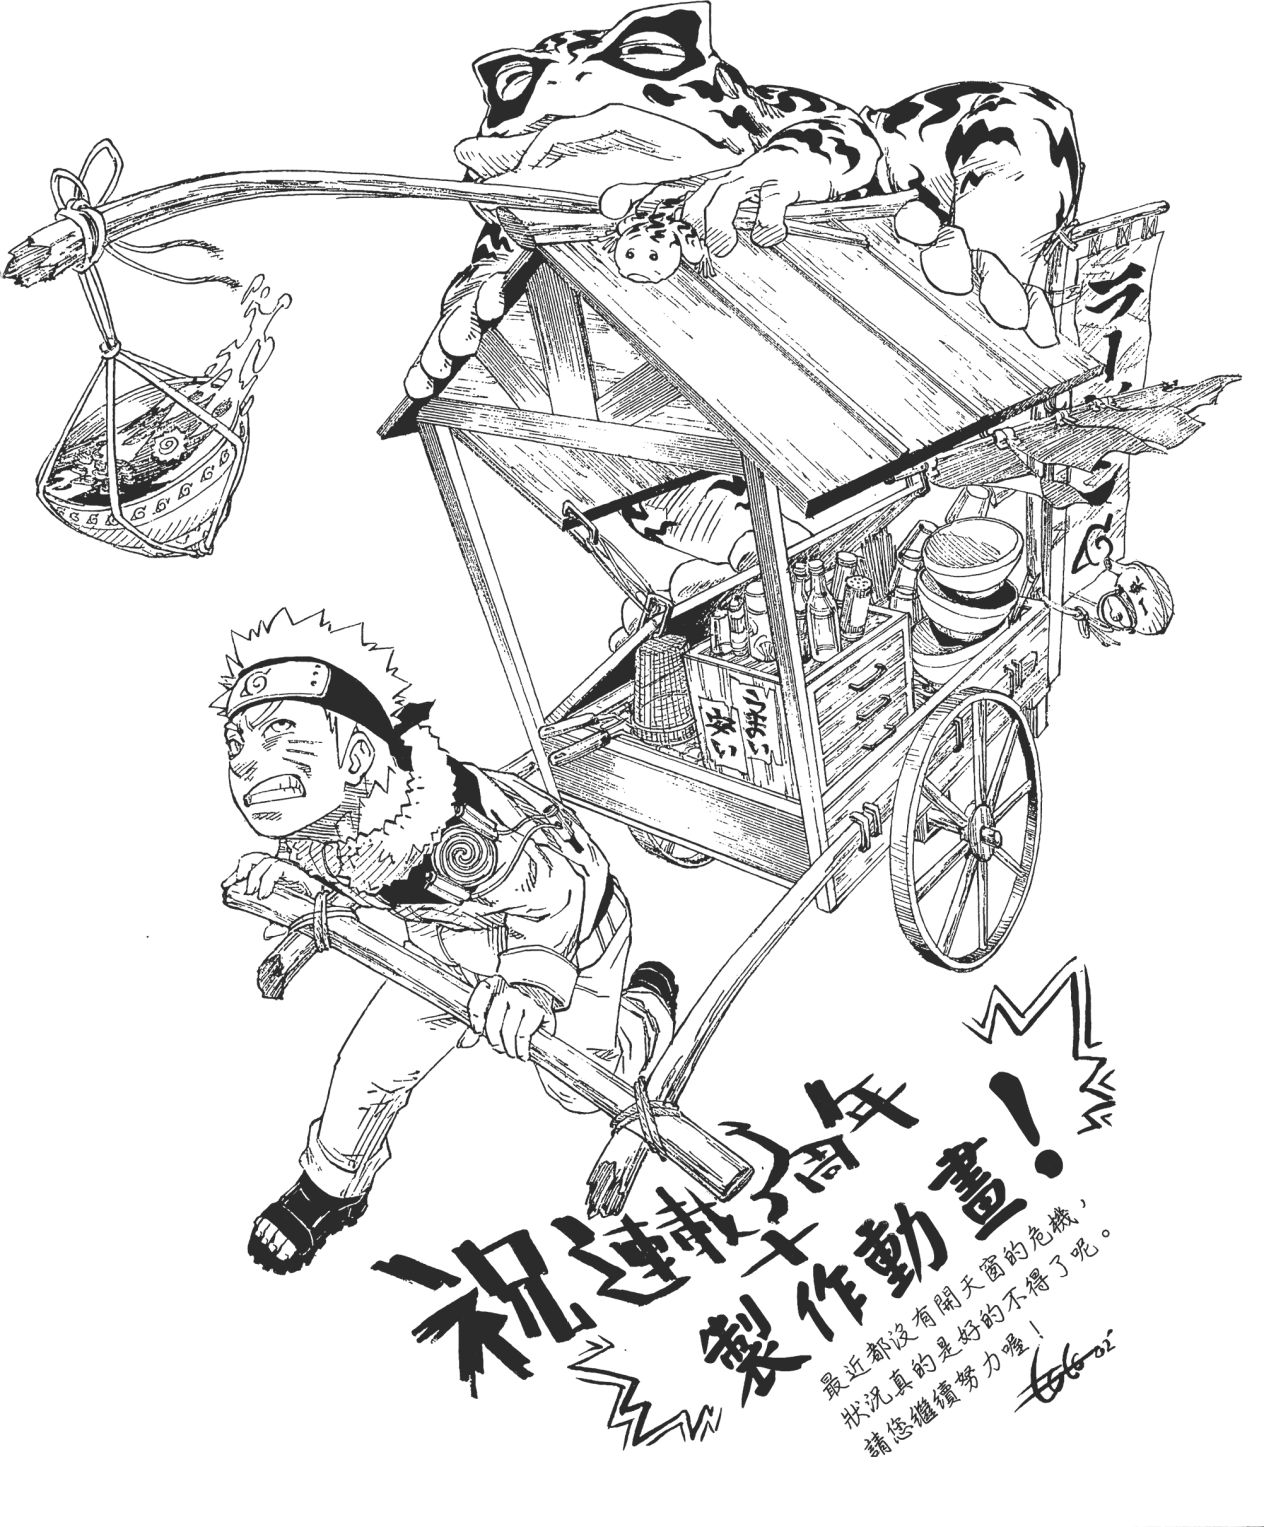 ラー
祝連載3周年
+
製作動畫！
最近都沒有開天窗的危機，
狀況真的是好的不得了呢。
請您繼續努力喔！